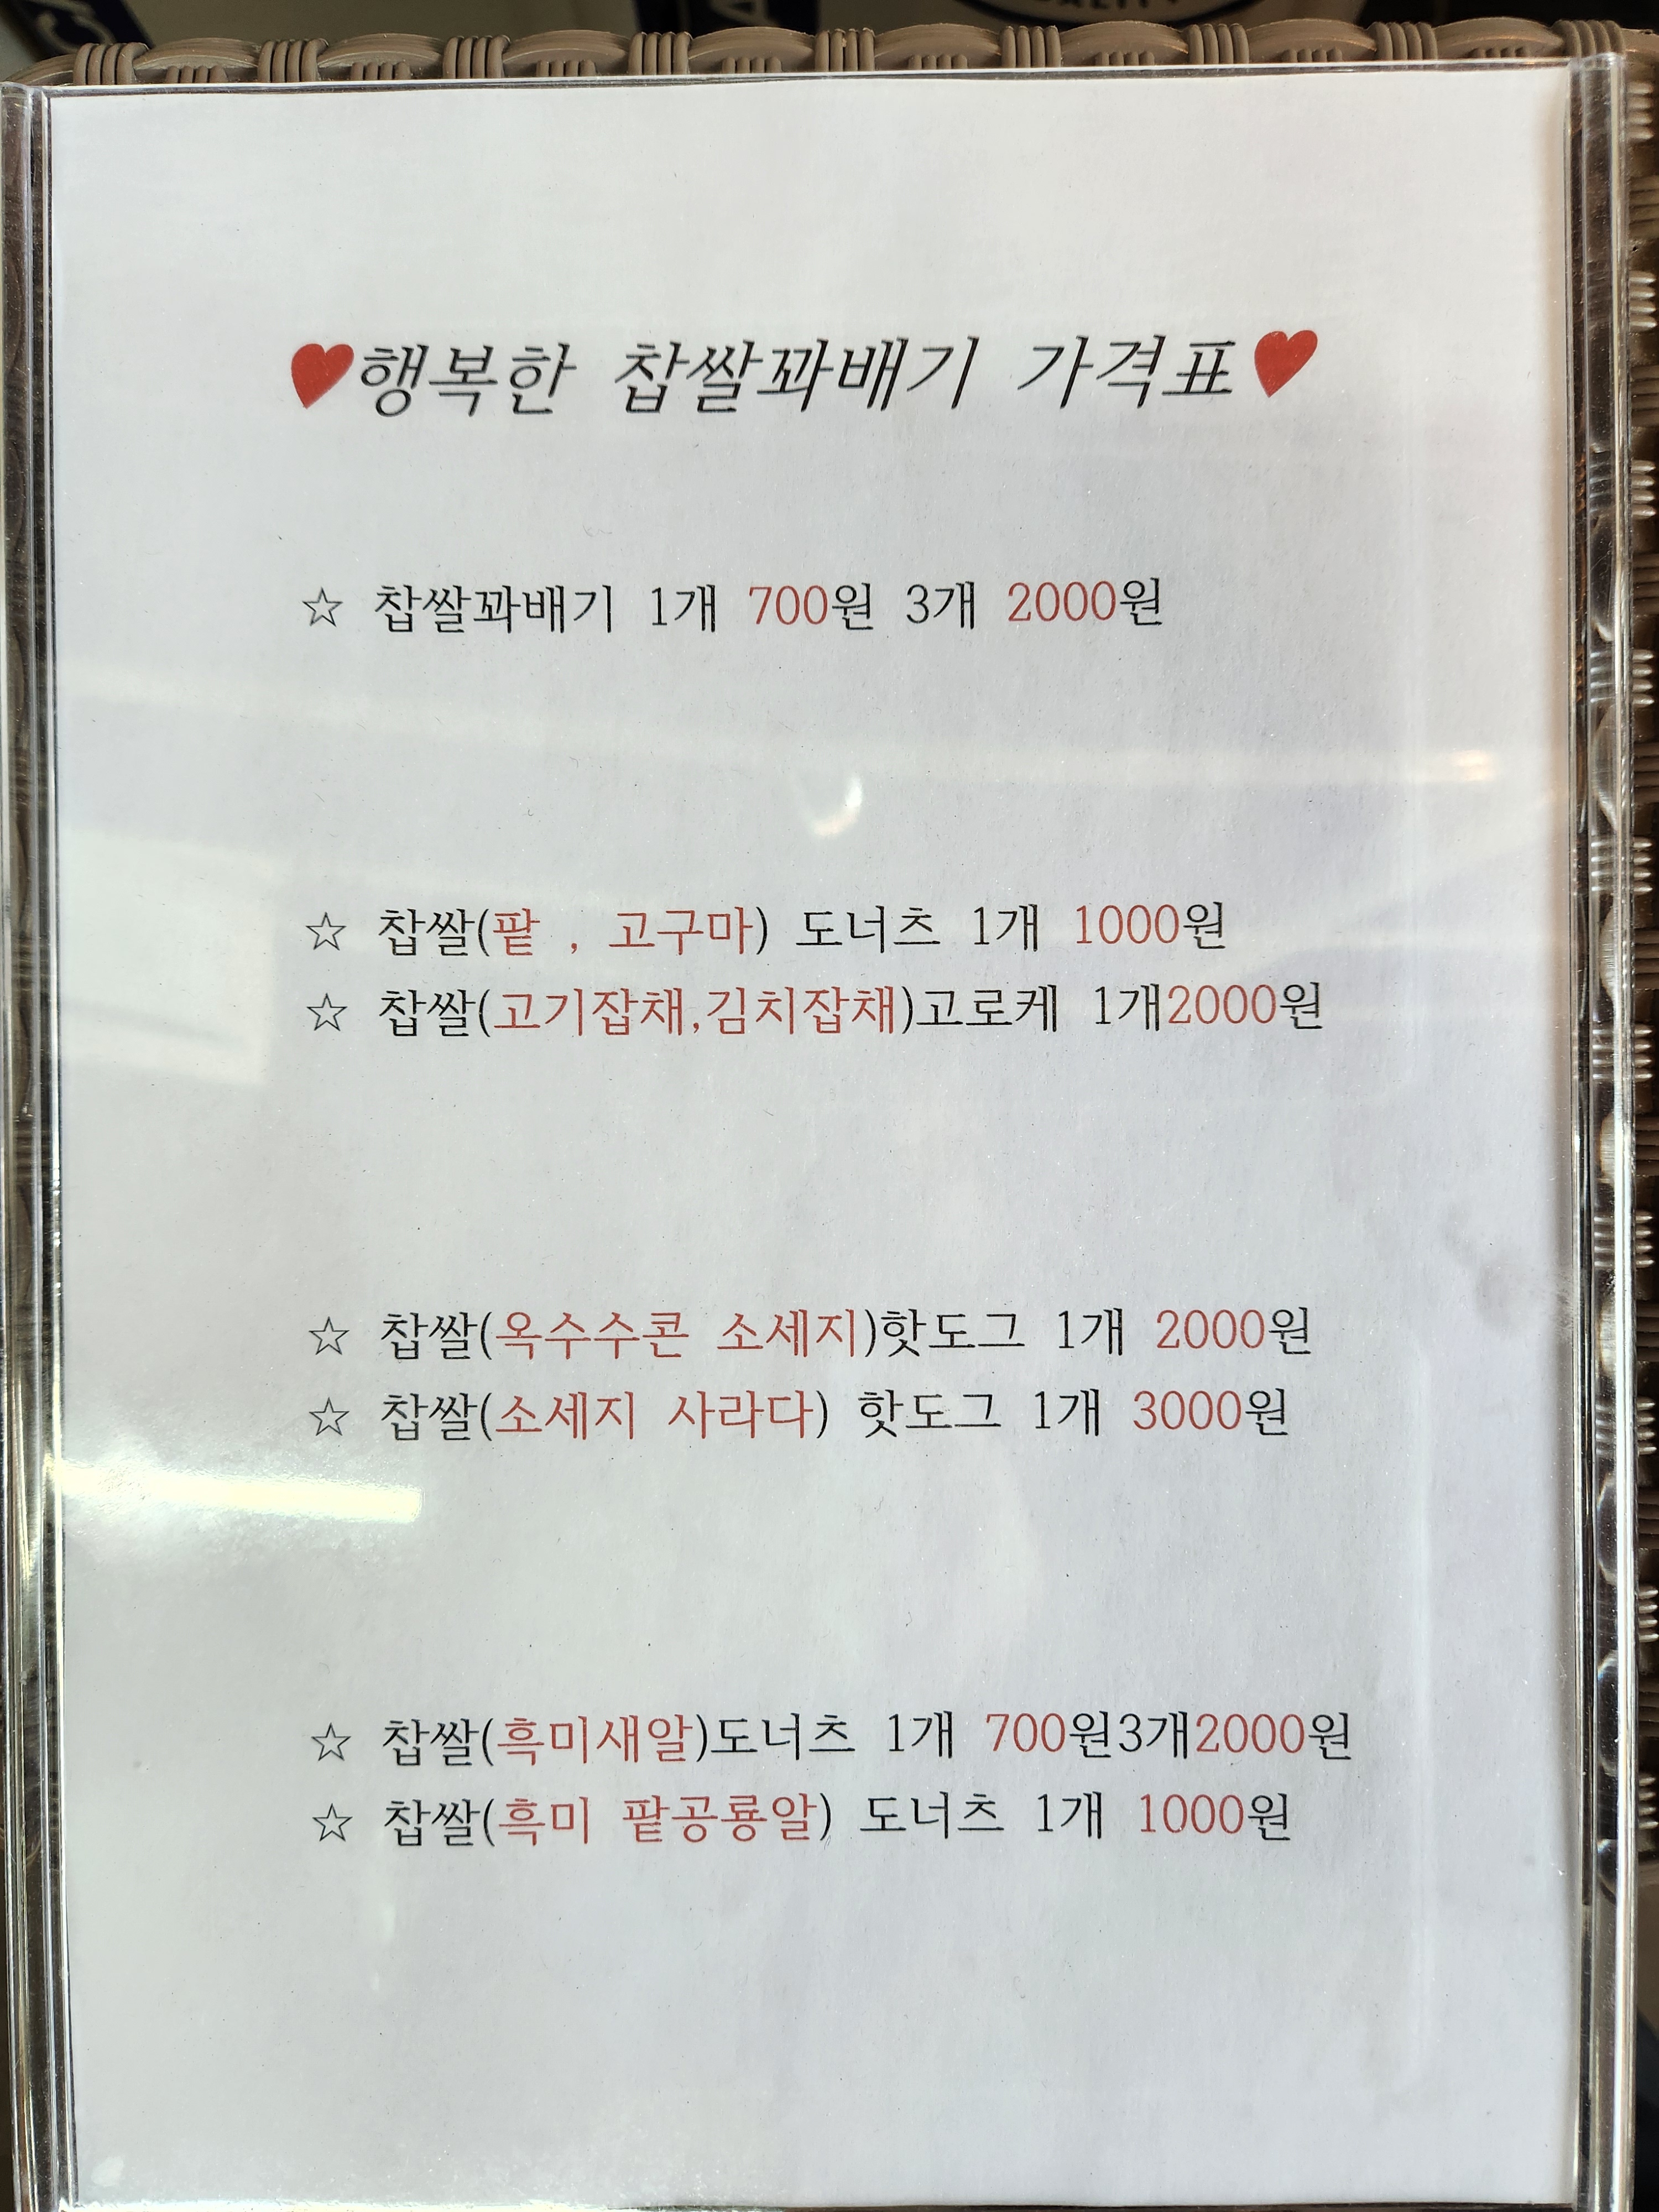 ♥행복한 찹쌀꽈배기 가격표♥
☆ 찹쌀꽈배기 1개 700원 3개 2000원
☆ 찹쌀(팥 , 고구마) 도너츠 1개 1000원
☆ 찹쌀(고기잡채,김치잡채)고로케 1개2000원
☆ 찹쌀(옥수수콘 소세지)핫도그 1개 2000원
☆ 찹쌀(소세지 사라다) 핫도그 1개 3000원
☆ 찹쌀(흑미새알)도너츠 1개 700원3개2000원
☆ 찹쌀(흑미 팥공룡알) 도너츠 1개 1000원